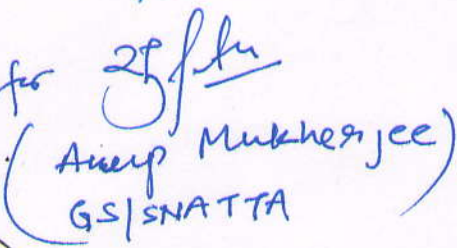 for
(Anup Mukherjee)
GS/SNATTA